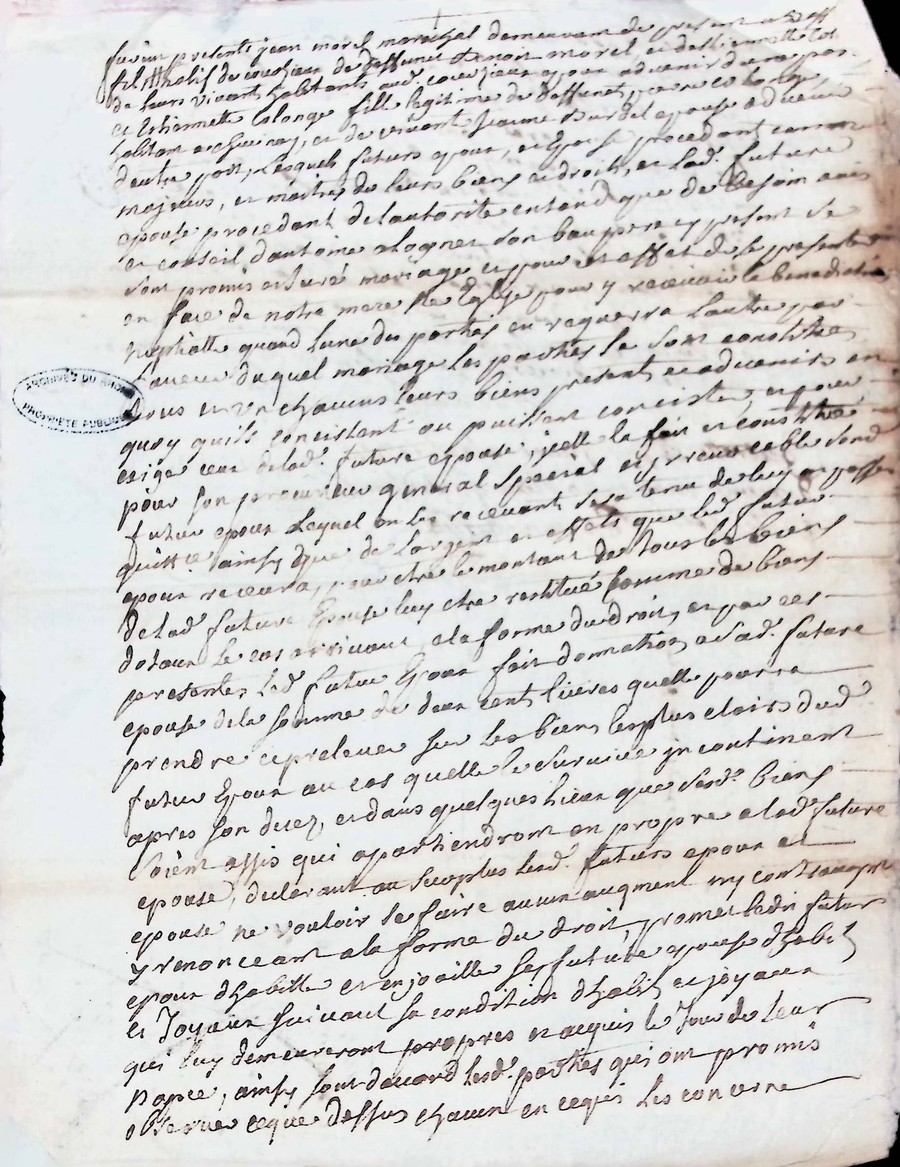 furent presents jean morel marechal demeurant de present a
fils natif de couzieux de deffunct Benoit morel et d'estiennette
de leurs vivant habitants aud. couzieux epoux advenir d'une part
et Estiennette Colonge fille legitime de deffunct pierre Colonge
habitant a et de vivante jeanne Burdel epouse advenir
d'autre part, Lesquels futurs epoux, et Epouse procedant comme
majeurs, et maitres de leurs biens et droits, et lad. future
epouse procedant de l'autorité entend que de besoin avis
et conseil d'antoine alognet son beaupere cy present se
sont promis et juré mariage et pour cet effet de se presenter
en face de notre mere Ste Eglise pour y recevoir la benediction
nuptialle quand l'une des parties en requerra l'autre par
faveur duquel mariage les parties se sont constitués
tous et un chacuns leurs biens presents et advenirs en
quoy quils consistent ou puissent consister, et pour
exiger ceux de lad. future epouse, jcelle la fait et constitué
pour son procureur general special et jrrevocable sond.
futur epoux Lequel en les recevant sera tenu de luy en passer
quittce ainsy que de l'argent et effets que led. futur
epoux recevra, pour etre le montant de tous les biens
de lad. future Epouse luy etre restitué comme de biens
dotaux le cas arrivant, a la forme du droit, et par ces
presentes led. futur Epoux fait donnation a sad. future
epouse de la somme de deux cent livres quelle pourra
prendre et prelever sur les biens les plus clairs dud.
futur Epoux au cas quelle le survive jncontinent
apres son decez, et dans quelques lieux que sesd. biens
soient assis qui apartiendront en propre a lad. future
epouse, declarant au surplus lesd. futurs epoux et
epouse ne vouloir se faire aucun augment ny contraugment
y renonceant a la forme du droit, promet ledit futur
epoux d'habiller et enjoailler sa future epouse d'habits
et Joyaux suivant sa condition d'habits et joyaux
qui luy demeureront propres et acquis le Jour de leur
nopce, ainsy sont d'accord lesd. parties qui ont promis
observer ceque dessus chacun en cequi les concerne
ARCHIVES DU RHONE
PROPRIETE PUBLIQUE